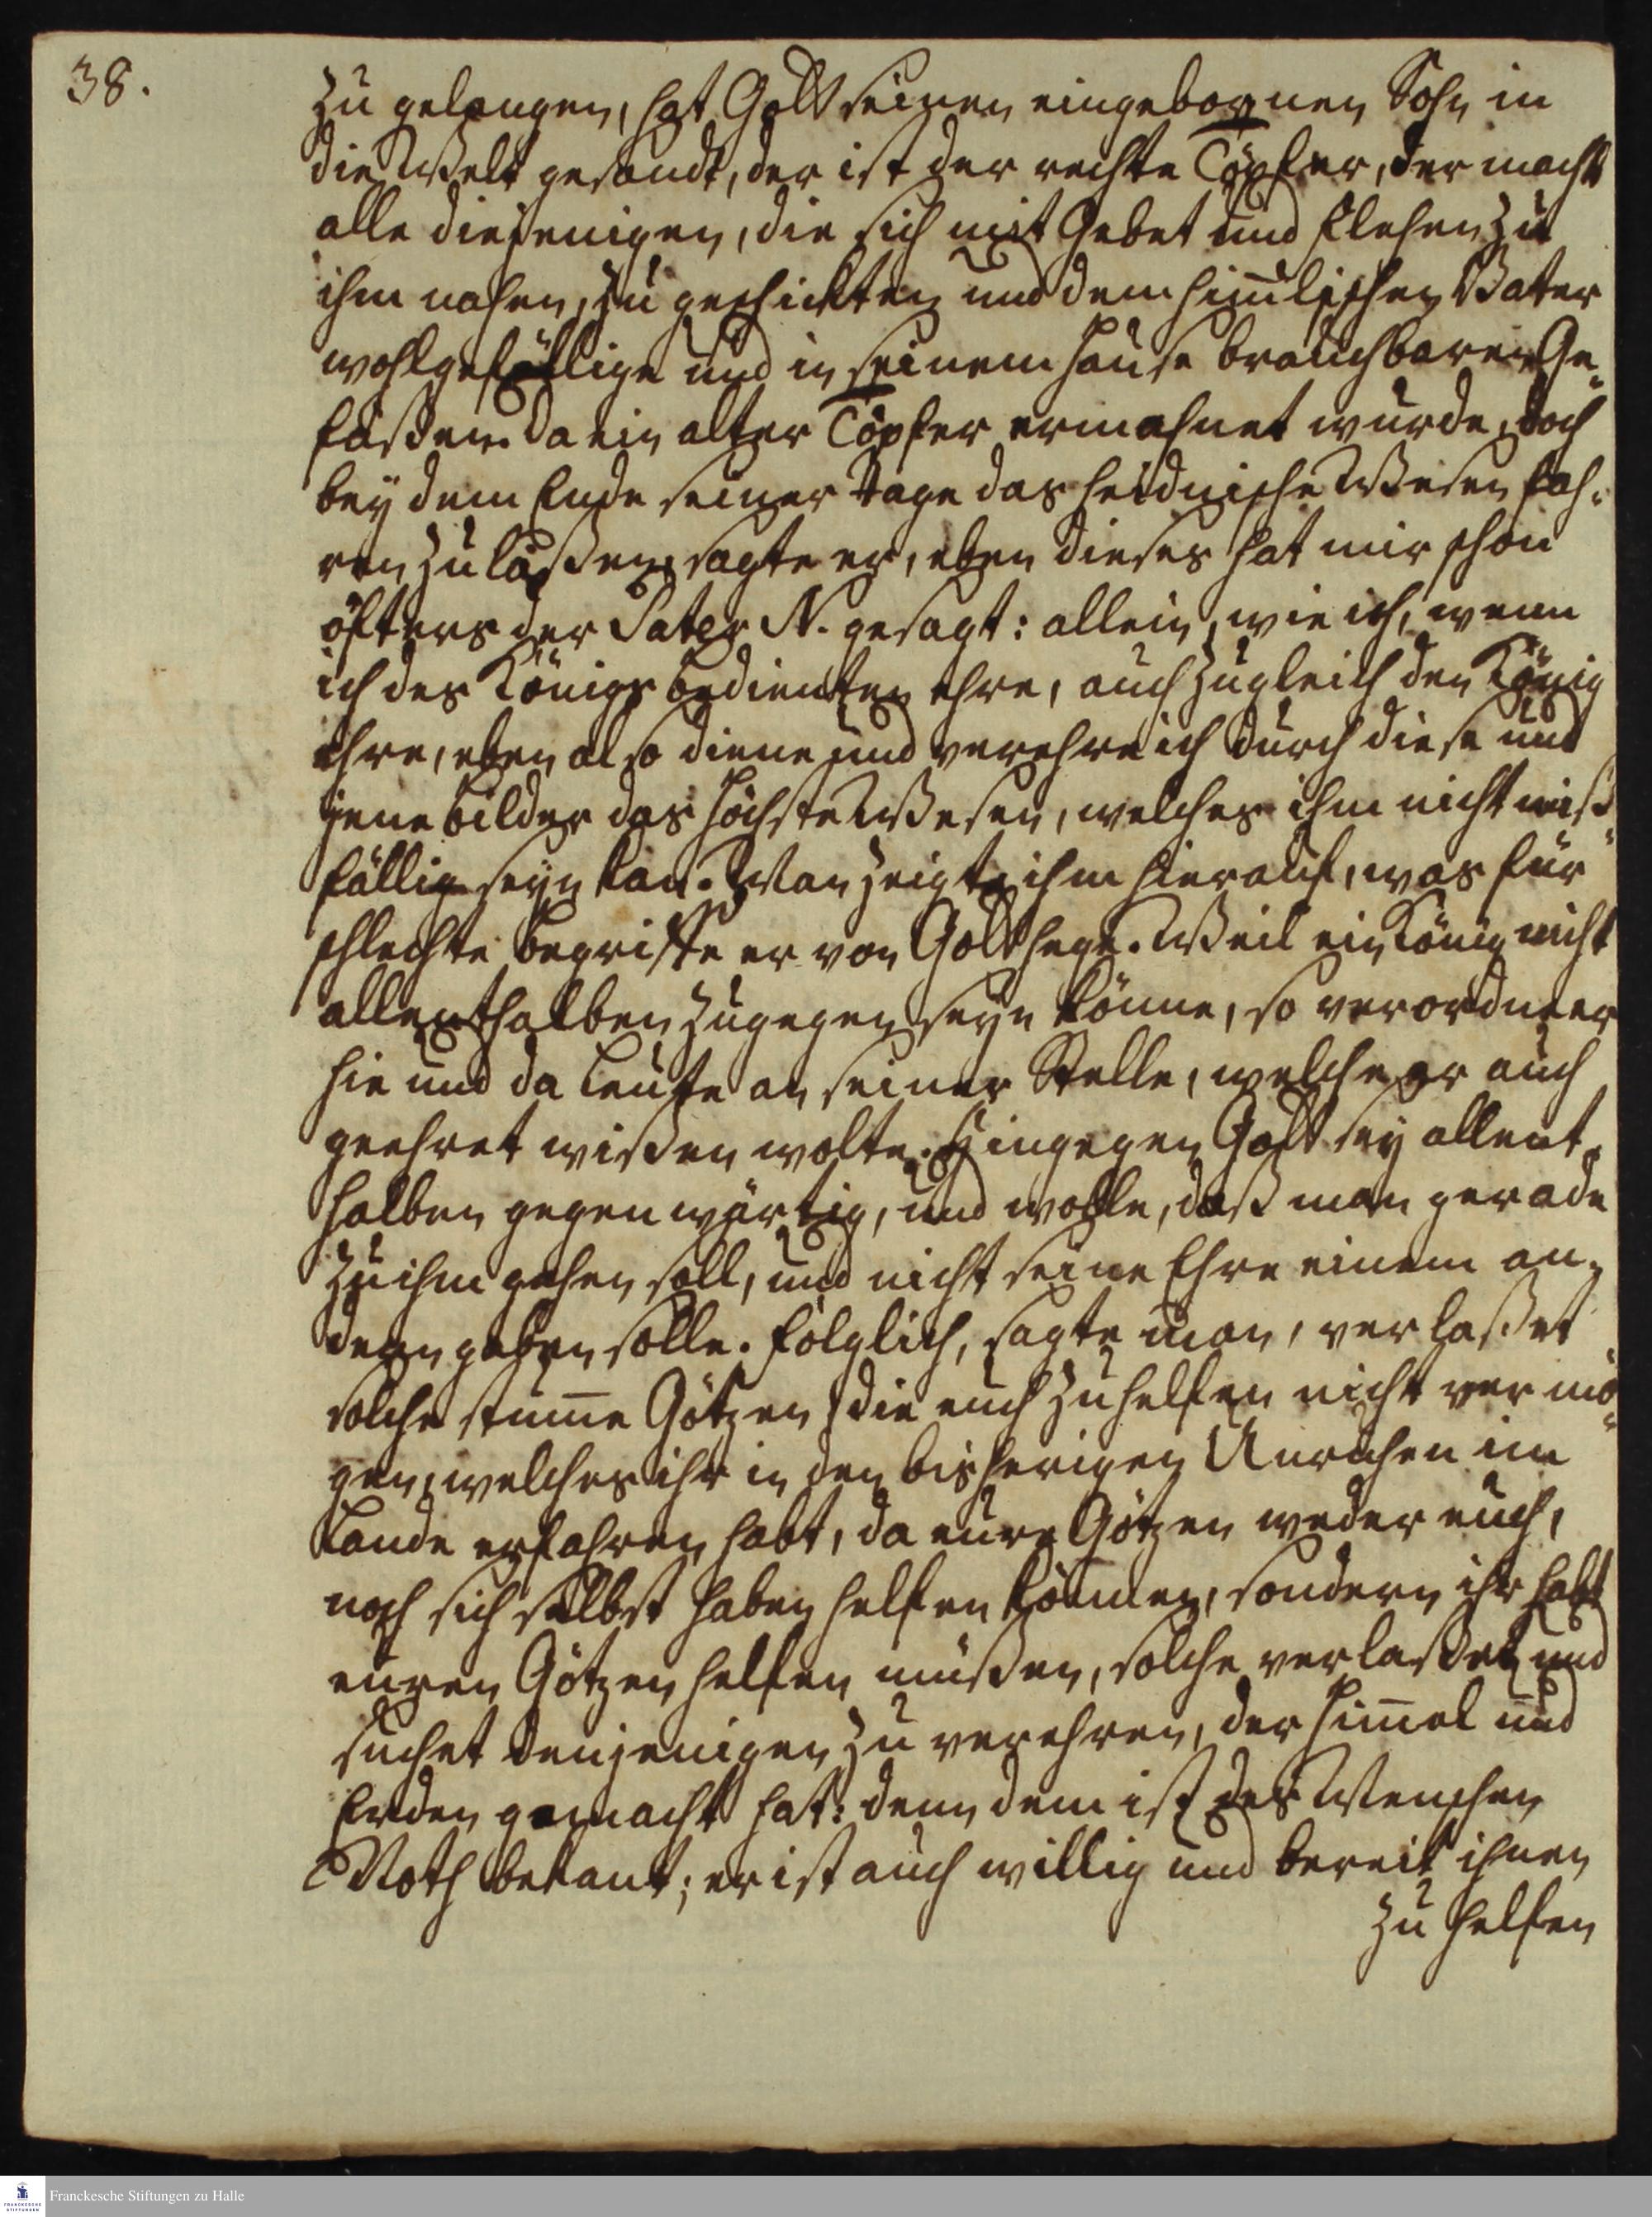 38.
zu gelangen, hat Gott seinen eingebornen Sohn in
die Welt gesandt, der ist der rechte Töpfer, der macht
alle diejenigen, die sich mit Gebet und Flehen zu
ihm nahen, zu geschickten und dem himlischen Vater
wohlgefällige und in seinem Hause brauchbaren Ge-
fäßen. Da ein alter Töpfer ermahnet wurde, doch
bey dem Ende seiner Tage das heidnische Wesen fah-
ren zu laßen, sagte er, eben dieses hat mir schon
öfters der Pater N. gesagt: allein, wie ich, wenn
ich des Königs bedienten ehre, auch zugleich den König
ehre, eben also diene und verehre ich durch diese und
jene bilder das höchste Wesen, welches ihm nicht miß-
fällig seyn kan. Man zeigte ihm hierauf, was für
schlechte begriffe er von Gott hege. Weil ein König nicht
allenthalben zugegen seyn könne, so verordne er
hie und da Leute an seiner Stelle, welche er auch
geehret wißen wolte. Hingegen Gott sey allent-
halben gegenwärtig, und wolle, daß man gerade
zu ihm gehen soll, und nicht seine Ehre einem an-
dern geben solle. Folglich, sagte man, verlaßet
solche stumme Götzen die euch zu helfen nicht vermö-
gen, welches ihr in den bisherigen Unruhen im
Lande erfahren habt, da eure Götzen weder euch,
noch sich selbst haben helfen können, sondern ihr habt
euren Götzen helfen müßen, solche verlaßet und
suchet denjenigen zu verehren, der Himmel und
Erden gemacht hat: denn dem ist des Menschen
Noth bekant; er ist auch willig und bereit ihnen
zu helfen
Franckesche Stiftungen zu Halle